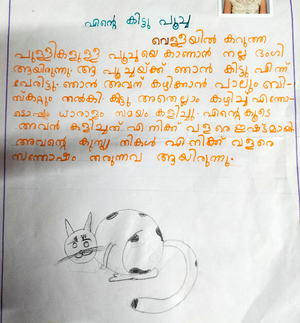 എന്റെ കിട്ടു പൂച്ച
വെള്ളയിൽ കറുത്ത
പുള്ളികളുള്ള പൂച്ചയെ കാണാൻ നല്ല ഭംഗി
ആയിരുന്നു. ആ പൂച്ചയ്ക്ക് ഞാൻ കിട്ടു എന്ന്
പേരിട്ടു. ഞാൻ അവന് കഴിക്കാൻ പാലും ബി-
സ്കറ്റും നൽകി കിട്ടു അതെല്ലാം കഴിച്ച് എന്നോ-
ടൊപ്പം ധാരാളം സമയം കളിച്ചു. എന്റെകൂടെ
അവൻ കളിച്ചത് എനിക്ക് വളരെ ഇഷ്ടമായി
അവന്റെ കുസൃതികൾ എനിക്ക് വളരെ
സന്തോഷം തരുന്നവ ആയിരുന്നു.